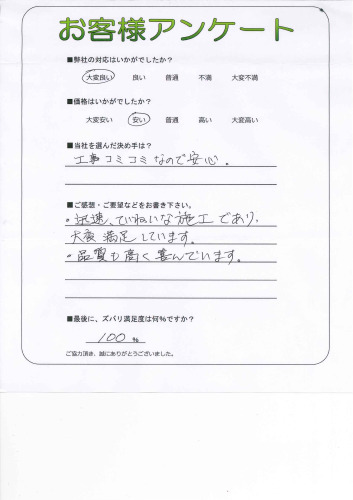 お客様アンケート
■弊社の対応はいかがでしたか?
大変良い 良い 普通 不満 大変不満
■価格はいかがでしたか?
大変安い 安い 普通 高い 大変高い
■当社を選んだ決め手は?
工事コミコミなので安心。
■ご感想・ご要望などをお書き下さい。
・迅速、ていねいな施工であり、
大変満足しています。
・品質も高く喜んでいます。
■最後に、ズバリ満足度は何%ですか?
100 %
ご協力頂き、誠にありがとうございました。